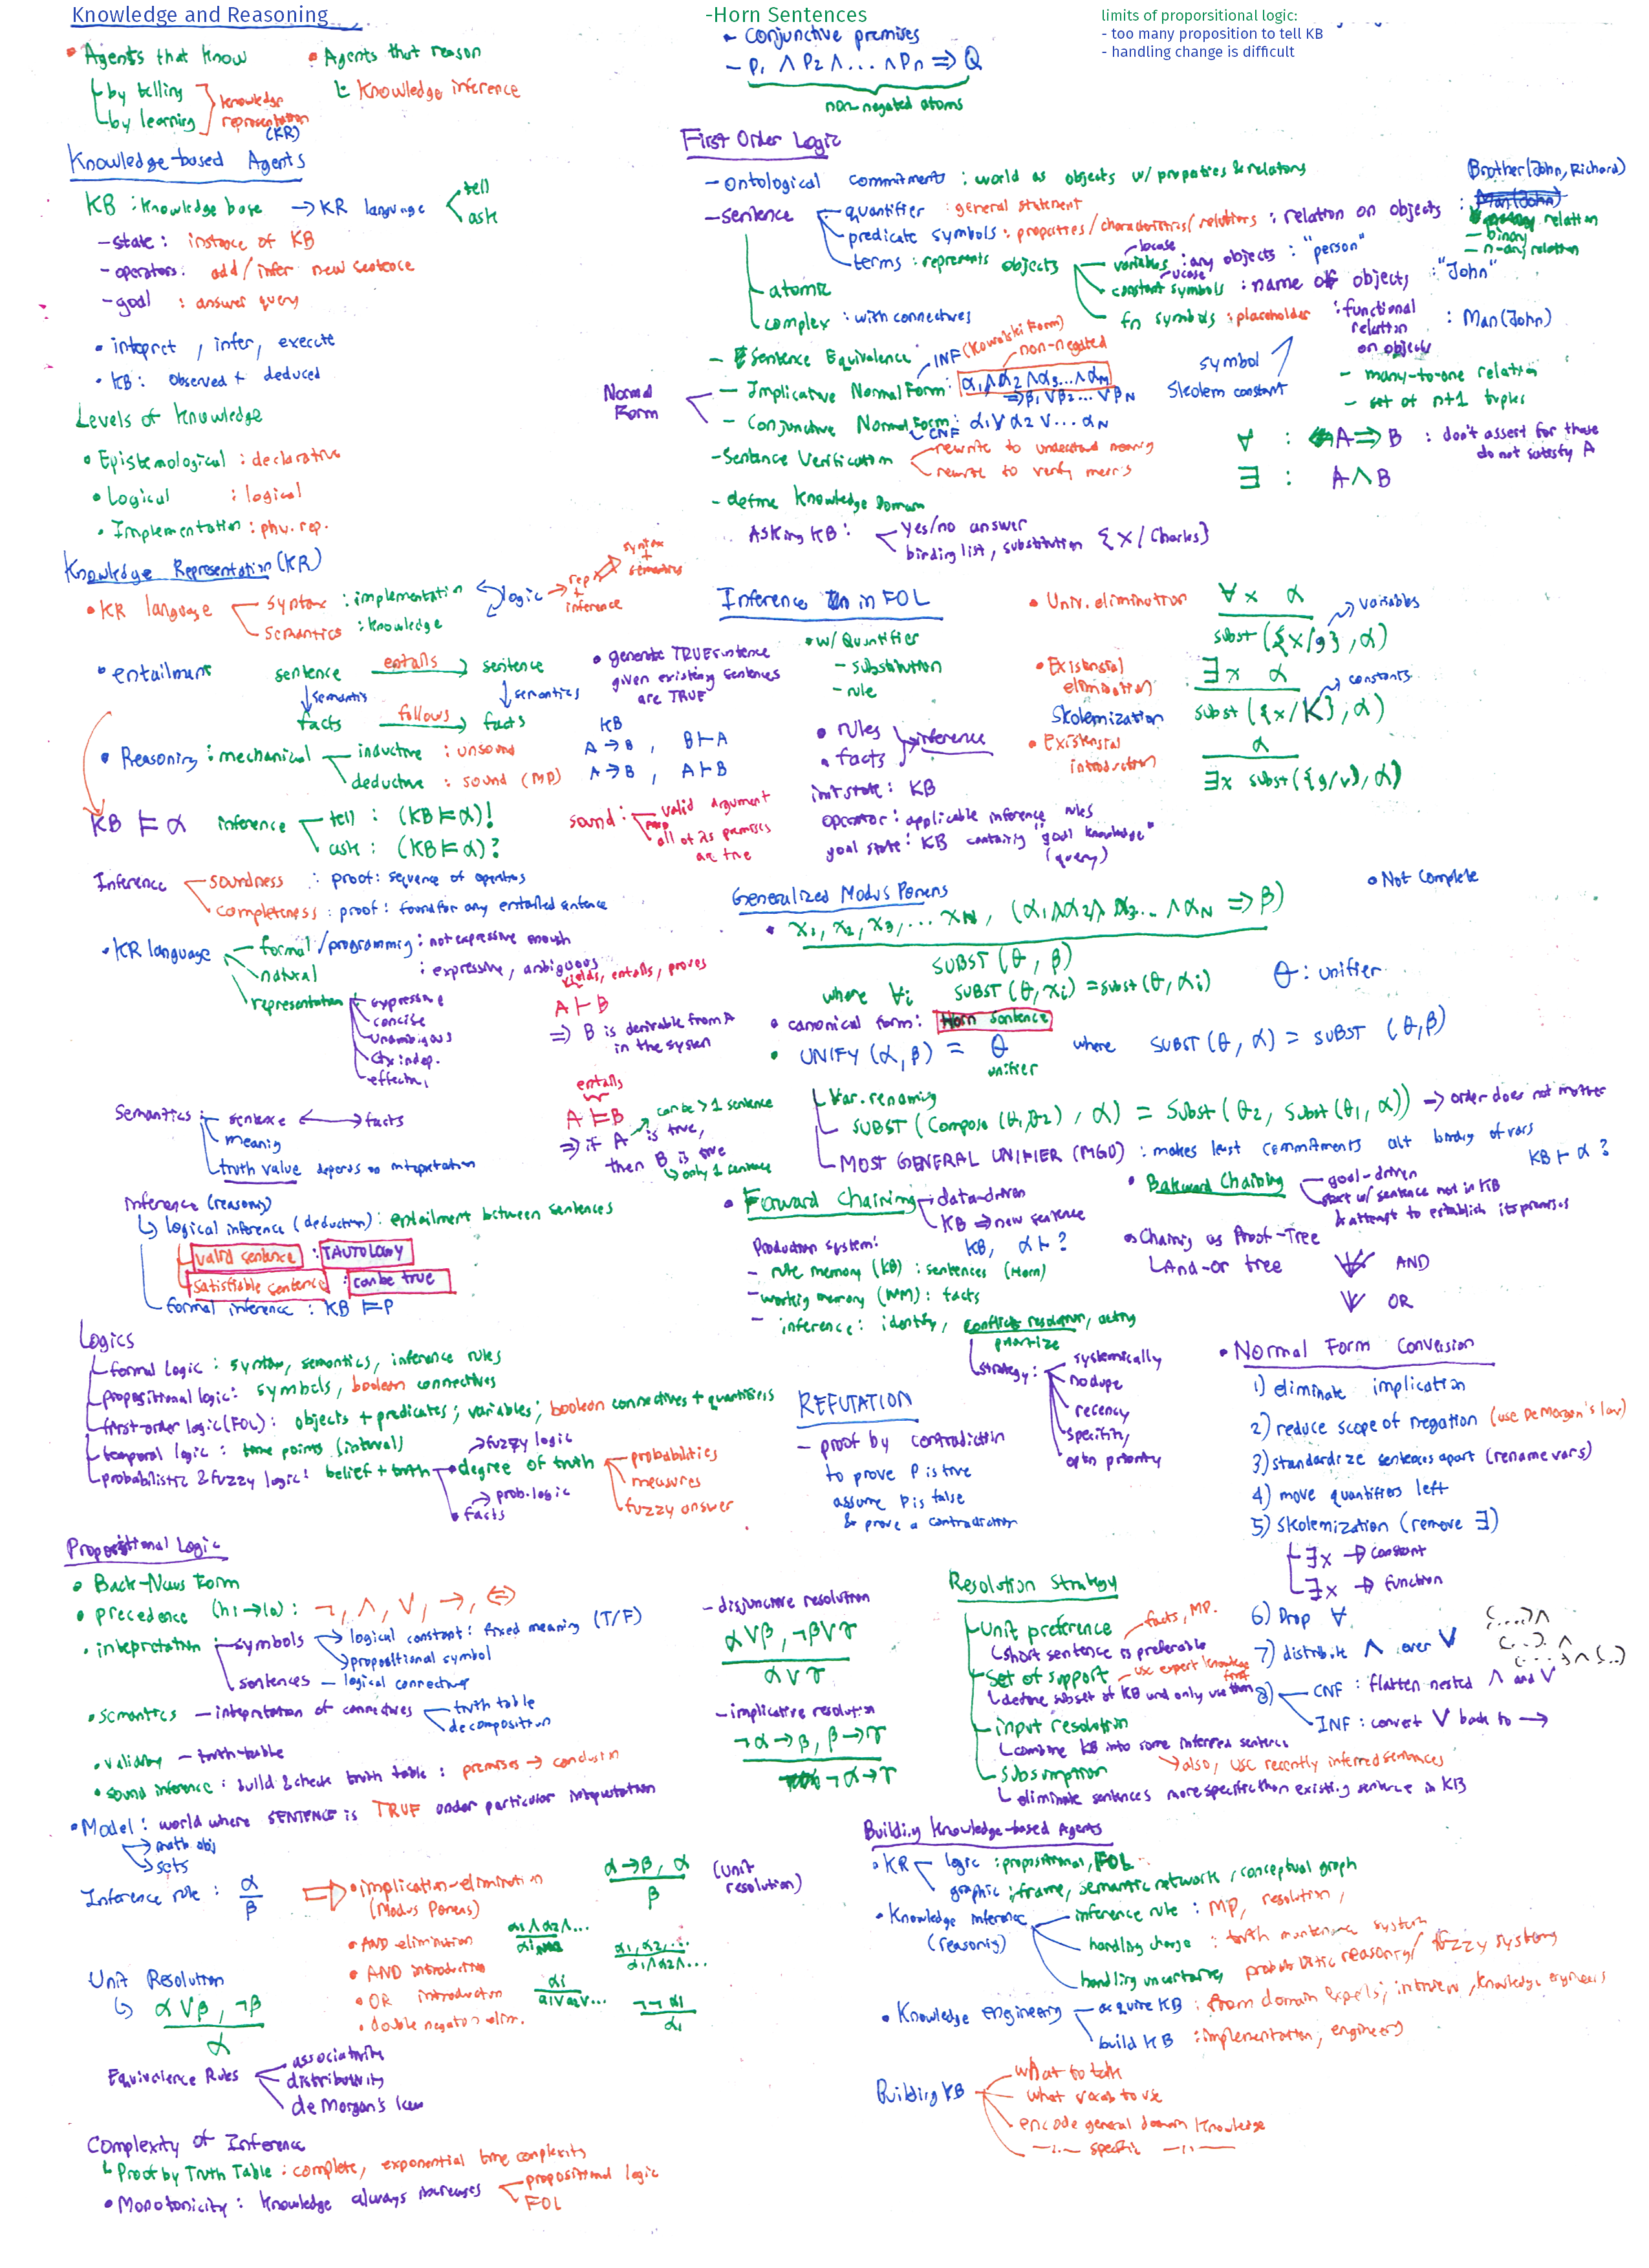 Knowledge and Reasoning
• Agents that know
by telling
by learning
knowledge representation (KR)
• Agents that reason
Knowledge inference
Knowledge-based Agents
KB : knowledge base → KR language
tell
ask
- state : instance of KB
- operators : add/infer new sentence
- goal : answer query
• intepret , infer, execute
• KB : observed + deduced
Levels of knowledge
• Epistemological : declarative
• Logical : logical
• Implementation : phy. rep.
Knowledge Representation (KR)
• KR language
syntax : implementation
semantics : knowledge
logic → rep + inference
syntax + semantics
• entailment
sentence entails → sentence
↓ semantics ↓ semantics
facts follows → facts
• generate TRUE sentence
given existing sentences
are TRUE
• Reasoning : mechanical
inductive : unsound
deductive : sound (MP)
KB
A → B , B ⊢ A
A → B , A ⊢ B
KB ⊨ α inference
tell : (KB ⊨ α)!
ask : (KB ⊨ α)?
sound :
valid argument
all of its premises
are true
Inference
soundness : proof : sequence of operators
completeness : proof : found for any entailed sentence
• KR language
formal/programming : not expressive enough
natural : expressive, ambiguous
representation
expressive
concise
unambigous
ctx indep.
effective
yields, entails, proves
A ⊢ B
⇒ B is derivable from A
in the system
Semantics :
sentence ↔ facts
meaning
truth value depends on intepretation
entails
A ⊨ B
can be > 1 sentence
⇒ if A is true,
then B is true
only 1 sentence
Inference (reason)
logical inference (deduction) : entailment between sentences
valid sentence : TAUTOLOGY
satisfiable sentence : can be true
formal inference : KB ⊨ P
Logics
formal logic : syntax, semantics, inference rules
propositional logic : symbols, boolean connectives
first-order logic (FOL) : objects + predicates ; variables ; boolean connectives + quantifiers
temporal logic : time points (interval)
probabilistic & fuzzy logic : belief + truth
→ fuzzy logic
• degree of truth
probabilities
measures
fuzzy answer
→ prob. logic
• facts
Propositional Logic
• Back-Naus Form
• precedence (hi → lo) : ¬, ∧, ∨, →, ⇔
• intepretation :
symbols
logical constant : fixed meaning (T/F)
propositional symbol
sentences - logical connective
• semantics - intepretation of connectives
truth table
decomposition
• validity - truth-table
• sound inference : build & check truth table : premises → conclusion
• Model : world where SENTENCE is TRUE under particular intepretation
→ math obj
→ sets
Inference rule : α / β
• implication-elimination
(Modus Ponens)
α → β, α / β
(unit resolution)
• AND elimination
α1 ∧ α2 ∧ ... / αi
• AND introduction
α1, α2, ... / α1 ∧ α2 ∧ ...
• OR introduction
αi / α1 ∨ α2 ∨ ...
• double negation elim.
¬¬α1 / α1
Unit Resolution
α ∨ β, ¬β / α
Equivalence Rules
associativity
distributivity
de Morgan's law
Complexity of Inference
Proof by Truth Table : complete, exponential time complexity
• Monotonicity : knowledge always increases
propositional logic
FOL
-Horn Sentences
- conjunctive premises
- P1 ∧ P2 ∧ ... ∧ Pn ⇒ Q
non negated atoms
limits of proporsitional logic:
- too many proposition to tell KB
- handling change is difficult
First Order Logic
- Ontological commitment : world as objects w/ propeties & relations
- Sentence
quantifier : general statement
predicate symbols : propeties/characteristics/relations : relation on objects :
Brother(John, Richard)
relation
- binary
- n-any relation
terms : represents objects
lcase
variables : any objects : "person"
ucase
constant symbols : name of objects : "John"
fn symbols : placeholder : functional relation on objects : Man(John)
- many-to-one relation
- set of n+1 tuples
symbol
Skolem constant
atomic
complex : with connectives
- Sentence Equivalence
INF (Kowalski Form)
non-negated
Normal Form
- Implicative Normal Form : α1 ∧ α2 ∧ α3 ... ∧ αM
⇒ β1 ∨ β2 ... ∨ βN
- Conjunctive Normal Form : α1 ∨ α2 ∨ ... αN
CNF
- Sentence Verification
rewrite to understand meaning
rewrite to verify
∀ : A ⇒ B : don't assert for those
do not satisfy A
∃ : A ∧ B
- define Knowledge Domain
Asking KB :
yes/no answer
binding list, substitution {x/Charles}
Inference in FOL
• w/ Quantifier
- substitution
- rule
• rules
• facts
inference
init state : KB
operator : applicable inference rules
goal state : KB containing "goal knowledge"
(query)
• Univ. elimination
∀x α / subst({x/g}, α)
variables
• Existensial elimination
Skolemization
∃x α / subst({x/K}, α)
constants
• Existensial introduction
α / ∃x subst({g/v}, α)
Generalized Modus Ponens
• Not complete
• x1, x2, x3, ... xN, (α1 ∧ α2 ∧ α3 ... ∧ αN ⇒ β)
SUBST(θ, β)
where ∀i SUBST(θ, xi) = subst(θ, αi)
θ : unifier
• canonical form : Horn Sentence
• UNIFY(α, β) = θ where SUBST(θ, α) = SUBST(θ, β)
unifier
Var. renaming
SUBST(Compose(θ1, θ2), α) = Subst(θ2, Subst(θ1, α)) → order does not matter
MOST GENERAL UNIFIER (MGU) : makes least commitments abt binding of vars
• Forward Chaining
data-driven
KB ⇒ new sentence
KB, α ⊢ ?
Production system :
- rule memory (KB) : sentences (Horn)
- working memory (WM) : facts
- inference : identify, conflicts resolution, acting
prioritize
strategy :
systemically
no dupe
recency
specificity
optn priority
KB ⊢ α ?
• Bakward Chaining
goal-driven
start w/ sentence not in KB
& attempt to establish its premises
• Chaining as Proof-Tree
And-or tree
AND
OR
REFUTATION
- proof by contradiction
to prove P is true
assume P is false
& prove a contradiction
• Normal Form Conversion
1) eliminate implication
2) reduce scope of negation (use DeMorgan's law)
3) standardize sentences apart (rename vars)
4) move quantifiers left
5) Skolemization (remove ∃)
∃x → constant
∃x → function
6) Drop ∀
7) distribute ∧ over ∨
(...) ∧
(...) ∧
(...) ∧ (...)
8)
CNF : flatten nested ∧ and ∨
INF : convert ∨ back to →
- disjunctive resolution
α ∨ β, ¬β ∨ γ / α ∨ γ
- implicative resolution
¬α → β, β → γ / ¬α → γ
Resolution Strategy
Unit preference
facts, MP.
short sentence is preferable
Set of support
use expert knowledge first
define subset of KB and only use them
input resolution
combine KB into some inferred sentence
→ also, use recently inferred sentences
Subsumption
eliminate sentences more specific than existing sentence in KB
Building Knowledge-based Agents
• KR
logic : propositional, FOL
graphic : frame, semantic network, conceptual graph
• Knowledge inference (reasoning)
inference rule : MP, resolution,
handling change : truth maintenance system
handling uncertainty probabilistic reasoning/ fuzzy systems
• Knowledge engineering
acquire KB : from domain experts; interview, knowledge engineers
build KB : implementation, engineering
Building KB
what to talk
what vocab to use
encode general domain knowledge
—"— specific —"—